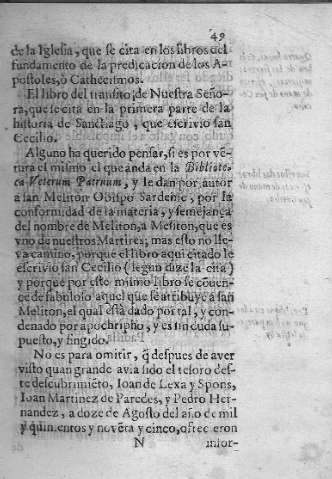 49
de la Iglesia, que se cita en los libros del
fundamento de la predicacion de los A-
postoles, ò Cathecismos.
El libro del transito de Nuestra Seño-
ra, que se cita en la primera parte de la
historia de Sanctiago, que escrivio san
Cecilio.
Alguno ha querido pensar, si es por vẽ-
tura el mismo el que anda en la Bibliote-
ca Veterum Patrum, y le dan por autor
a san Meliton Obispo Sardense, por la
conformidad de la materia, y semejança
del nombre de Meliton, a Mesiton, que es
vno de nuestros Martires; mas esto no lle-
va camino, porque el libro aqui citado le
escrivio san Cecilio (segun dize la cita)
y porque por este mismo libro se cõuen-
ce de fabuloso aquel que se atribuye a san
Meliton, el qual està dado por tal, y con-
denado por apochripho, y es sin duda su-
puesto, y fingido.
No es para omitir, q̃ despues de aver
visto quan grande avia sido el tesoro des-
te descubrimiẽto, Ioan de Lexa y Spons,
Ioan Martinez de Paredes, y Pedro Her-
nandez, a doze de Agosto del año de mil
y quinientos y novẽta y cinco, ofrecieron
N infor-